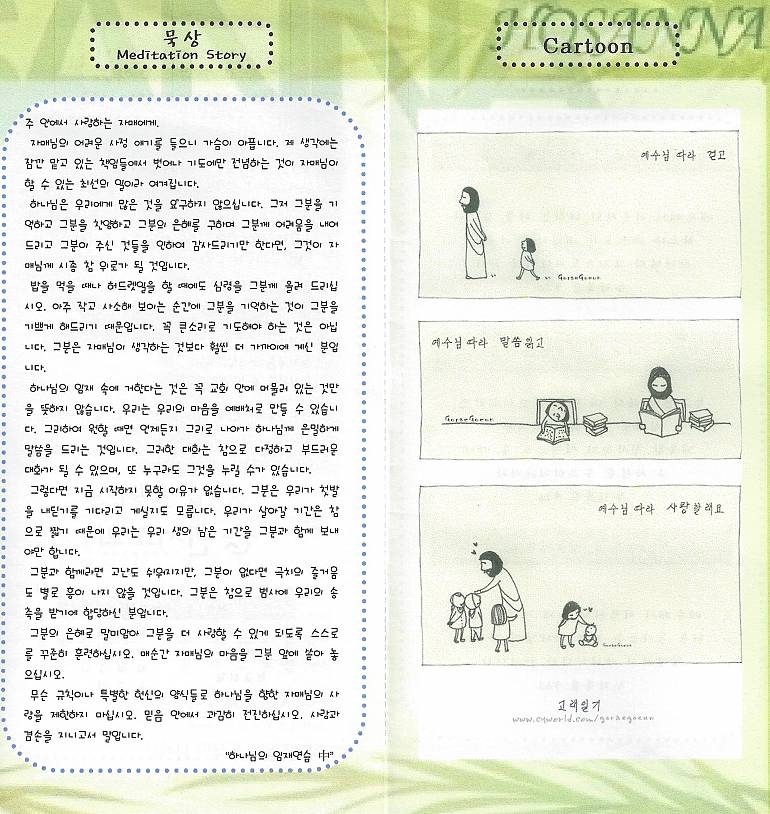 묵상
Meditation Story
주 안에서 사랑하는 자매에게.
자매님의 어려운 사정 얘기를 들으니 가슴이 아픕니다. 제 생각에는
잠깐 맡고 있는 책임들에서 벗어나 기도에만 전념하는 것이 자매님이
할 수 있는 최선의 일이라 여겨집니다.
하나님은 우리에게 많은 것을 요구하지 않으십니다. 그저 그분을 기
억하고 그분을 찬양하고 그분의 은혜를 구하며 그분께 어려움을 내어
드리고 그분이 주신 것들을 인하여 감사드리기만 한다면, 그것이 자
매님께 시종 참 위로가 될 것입니다.
밥을 먹을 때나 허드렛일을 할 때에도 심령을 그분께 올려 드리십
시오. 아주 작고 사소해 보이는 순간에 그분을 기억하는 것이 그분을
기쁘게 해드리기 때문입니다. 꼭 큰소리로 기도해야 하는 것은 아닙
니다. 그분은 자매님이 생각하는 것보다 훨씬 더 가까이에 계신 분입
니다.
하나님의 임재 속에 거한다는 것은 꼭 교회 안에 머물러 있는 것만
을 뜻하지 않습니다. 우리는 우리의 마음을 예배처로 만들 수 있습니
다. 그리하여 원할 때면 언제든지 그리로 나아가 하나님께 은밀하게
말씀을 드리는 것입니다. 그러한 대화는 참으로 다정하고 부드러운
대화가 될 수 있으며, 또 누구라도 그것을 누릴 수가 있습니다.
그렇다면 지금 시작하지 못할 이유가 없습니다. 그분은 우리가 첫발
을 내딛기를 기다리고 계실지도 모릅니다. 우리가 살아갈 기간은 참
으로 짧기 때문에 우리는 우리 생의 남은 기간을 그분과 함께 보내
야만 합니다.
그분과 함께라면 고난도 쉬워지지만, 그분이 없다면 극치의 즐거움
도 별로 흥이 나지 않을 것입니다. 그분은 참으로 범사에 우리의 송
축을 받기에 합당하신 분입니다.
그분의 은혜로 말미암아 그분을 더 사랑할 수 있게 되도록 스스로
를 꾸준히 훈련하십시오. 매순간 자매님의 마음을 그분 앞에 쏟아 놓
으십시오.
무슨 규칙이나 특별한 헌신의 양식들로 하나님을 향한 자매님의 사
랑을 제한하지 마십시오. 믿음 안에서 과감히 전진하십시오. 사랑과
겸손을 지니고서 말입니다.
"하나님의 임재연습 中"
HOSANNA
Cartoon
예수님 따라 걷고
GoraeGoeun
예수님 따라 말씀 읽고
GoraeGoeun
예수님 따라 사랑할래요
GoraeGoeun
고래일기
www.cyworld.com/goraegoeun